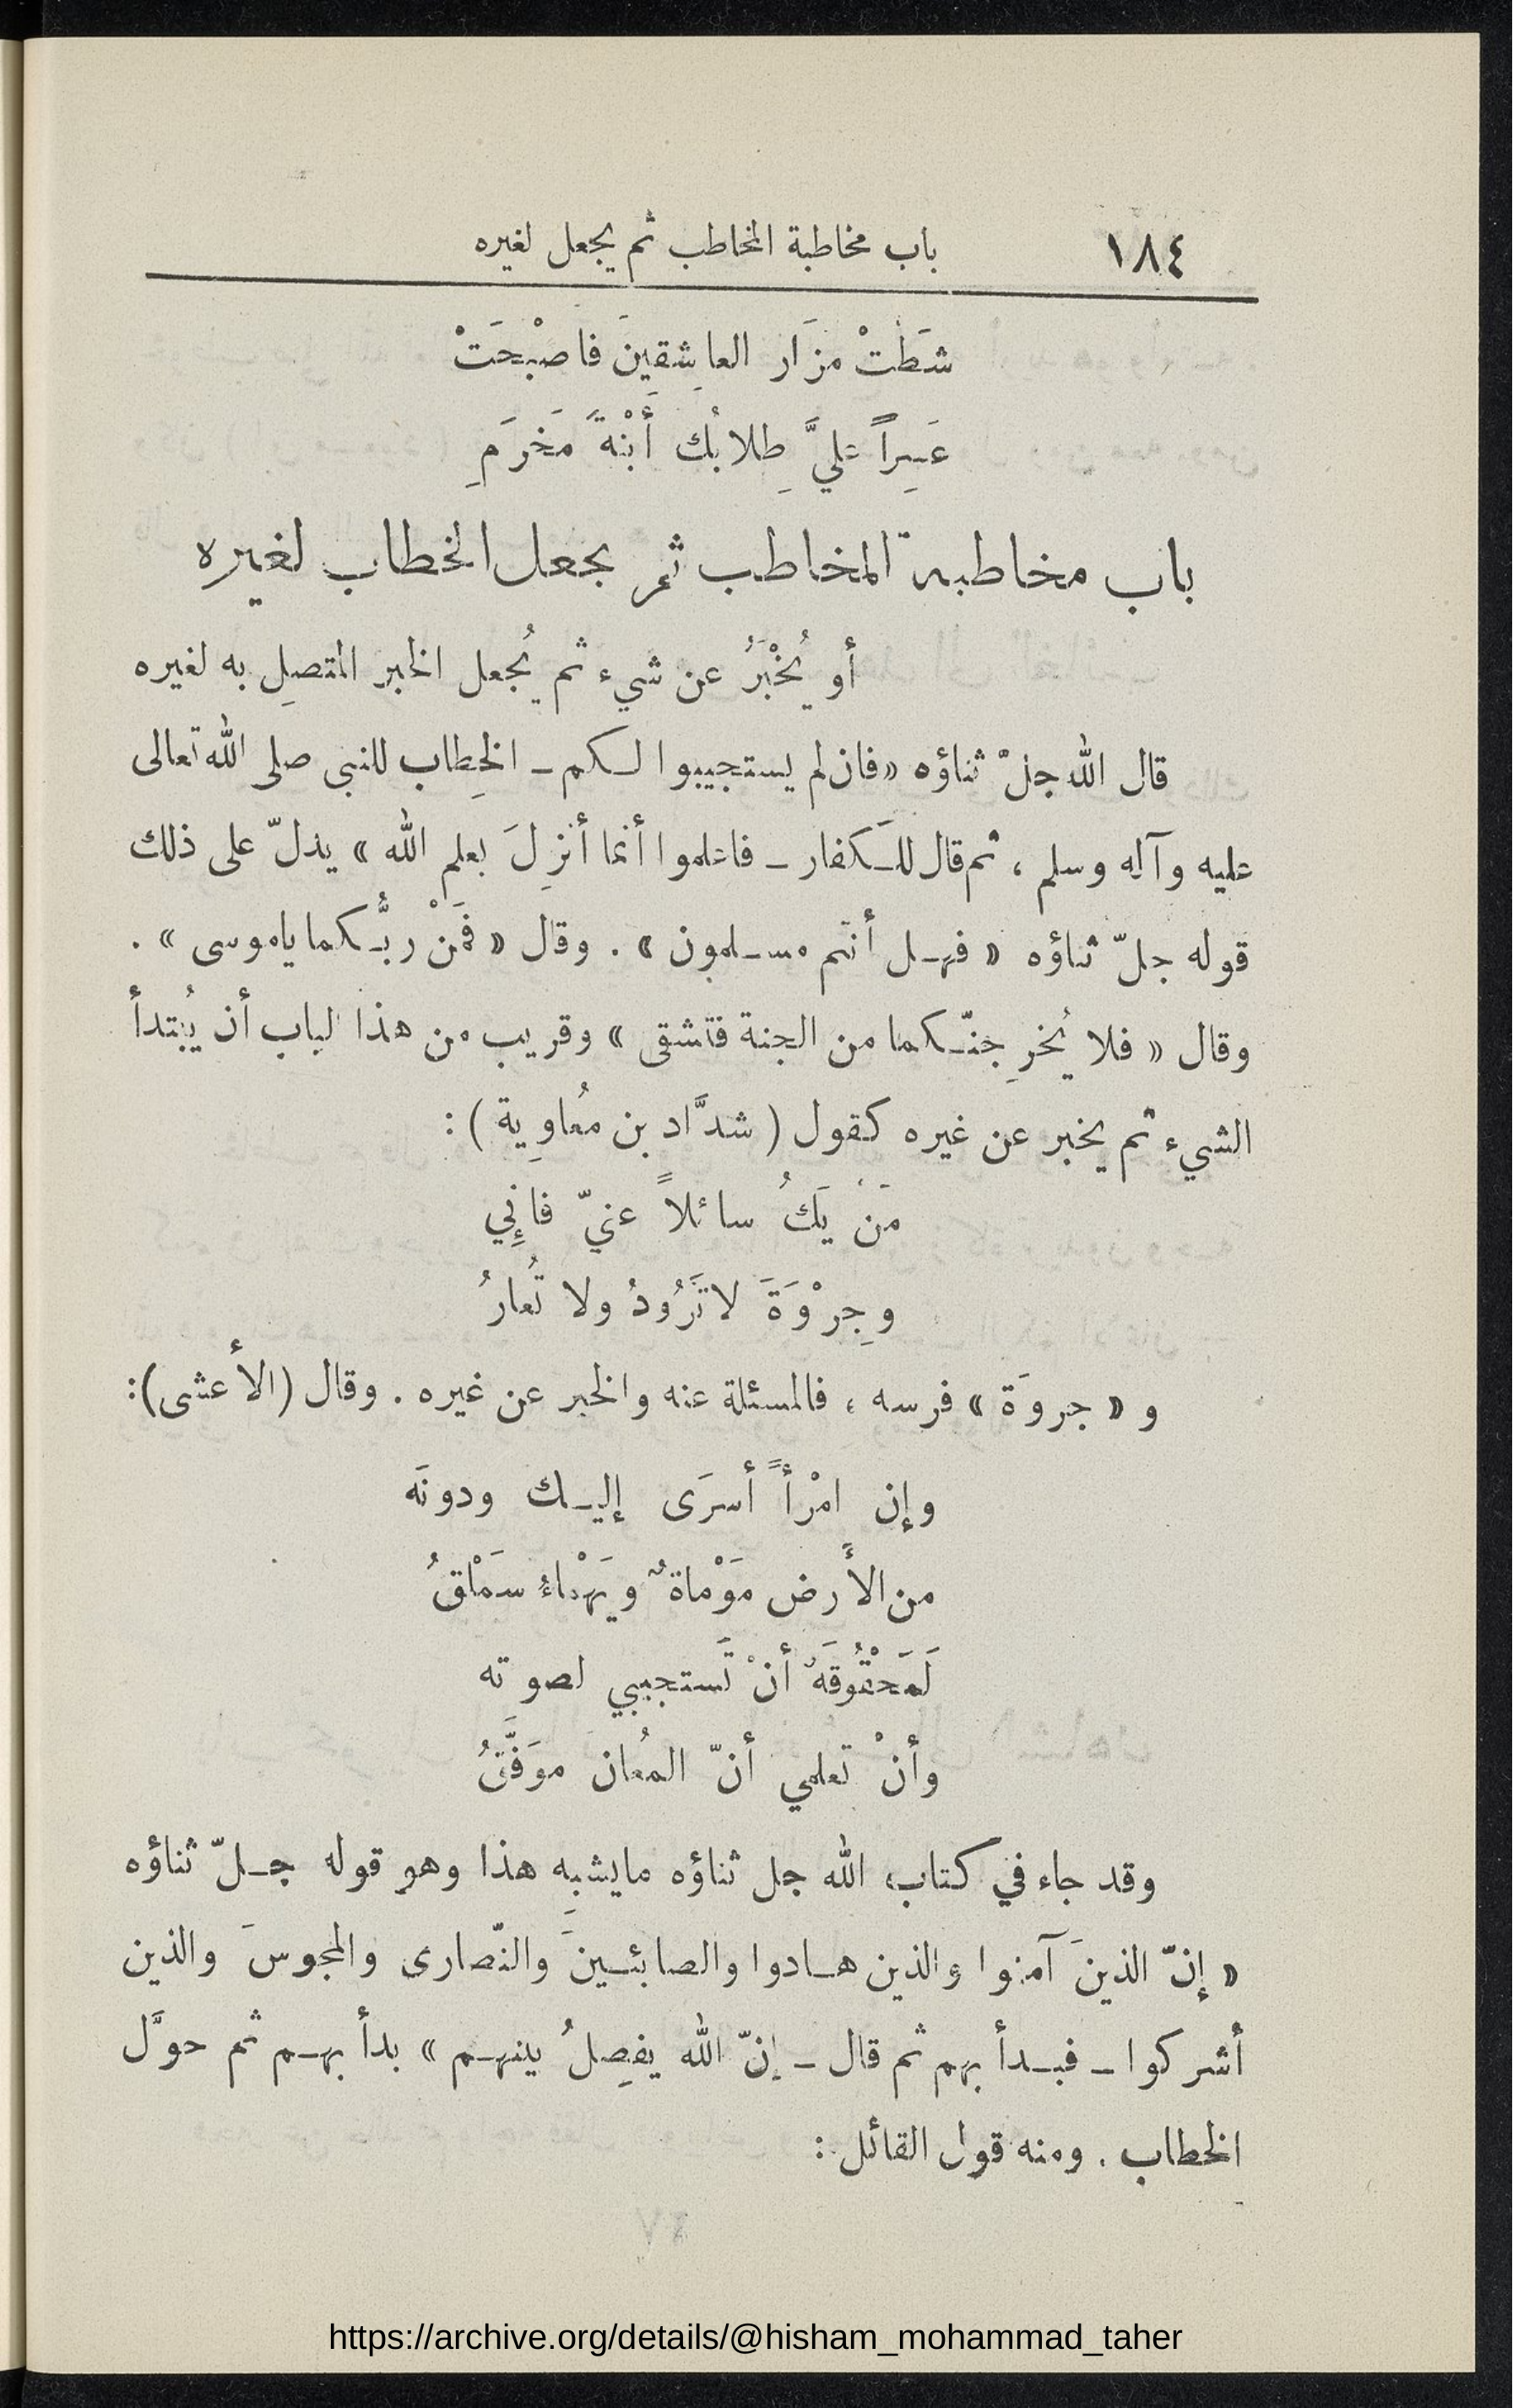 ١٨٤ باب مخاطبة المخاطب ثم يجعل لغيره
شَطَتْ مزَار العاشِقينَ فاصْبْحَتْ
عَسِراً عَليَّ طِلابُك أَبْنةَ مَخرَمِ
باب مخاطبة المخاطب ثم يجعل الخطاب لغيره
أو يُخْبَرُ عن شيء ثم يُجعل الخبر المتصلِ به لغيره
قال الله جلّ ثناؤه «فان لم يستجيبوا لكم ــ الخِطاب للنبى صلى الله تعالى
عليه وآله وسلم ، ثم قال للكَفار ــ فاعلموا أنما أُنزِلَ بعلم الله » يدلّ على ذلك
قوله جلّ ثناؤه « فهل أنتم مسلمون » . وقال « فَمَنْ ربُّكما ياموسى » .
وقال « فلا يُخرِجنّكما من الجنة فتشقى » وقريب من هذا الباب أن يُبتدأ
الشيء ثم يخبر عن غيره كقول ( شدَّاد بن مُعاوِية ) :
مَنْ يَكُ سائلاً عنيّ فانِّي
وجِرْوَةَ لاتَرُودُ ولا تُعارُ
و « جروَة » فرسه ، فالمسئلة عنه والخبر عن غيره . وقال (الأعشى):
وإن امْرأً أسرَى إليك ودونَه
من الأَرض مَوْماةٌ ويَهْماءُ سَمْلقُ
لَمَحْقُوقَةٌ أنْ تَستجيبي لصوته
وأنْ تعلمي أنّ المُعان موَفَّقُ
وقد جاء في كتاب الله جل ثناؤه مايشبِه هذا وهو قوله جلّ ثناؤه
« إنّ الذينَ آمنوا والذين هادوا والصابئينَ والنّصارى والمجوسَ والذين
أشركوا ــ فبدأ بهم ثم قال ــ إنّ الله يفصِلُ بينهم » بدأ بهم ثم حوَّل
الخطاب . ومنه قول القائل :
https://archive.org/details/@hisham_mohammad_taher